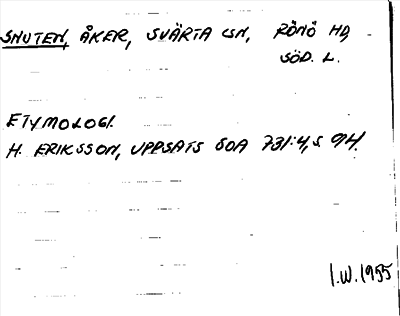 SNUTEN, ÅKER, SVÄRTA SN, RÖNÖ HD,
SÖD. L.
ETYMOLOGI.
H. ERIKSSON, UPPSATS SOA 731:4, S. 94.
I.W. 1955